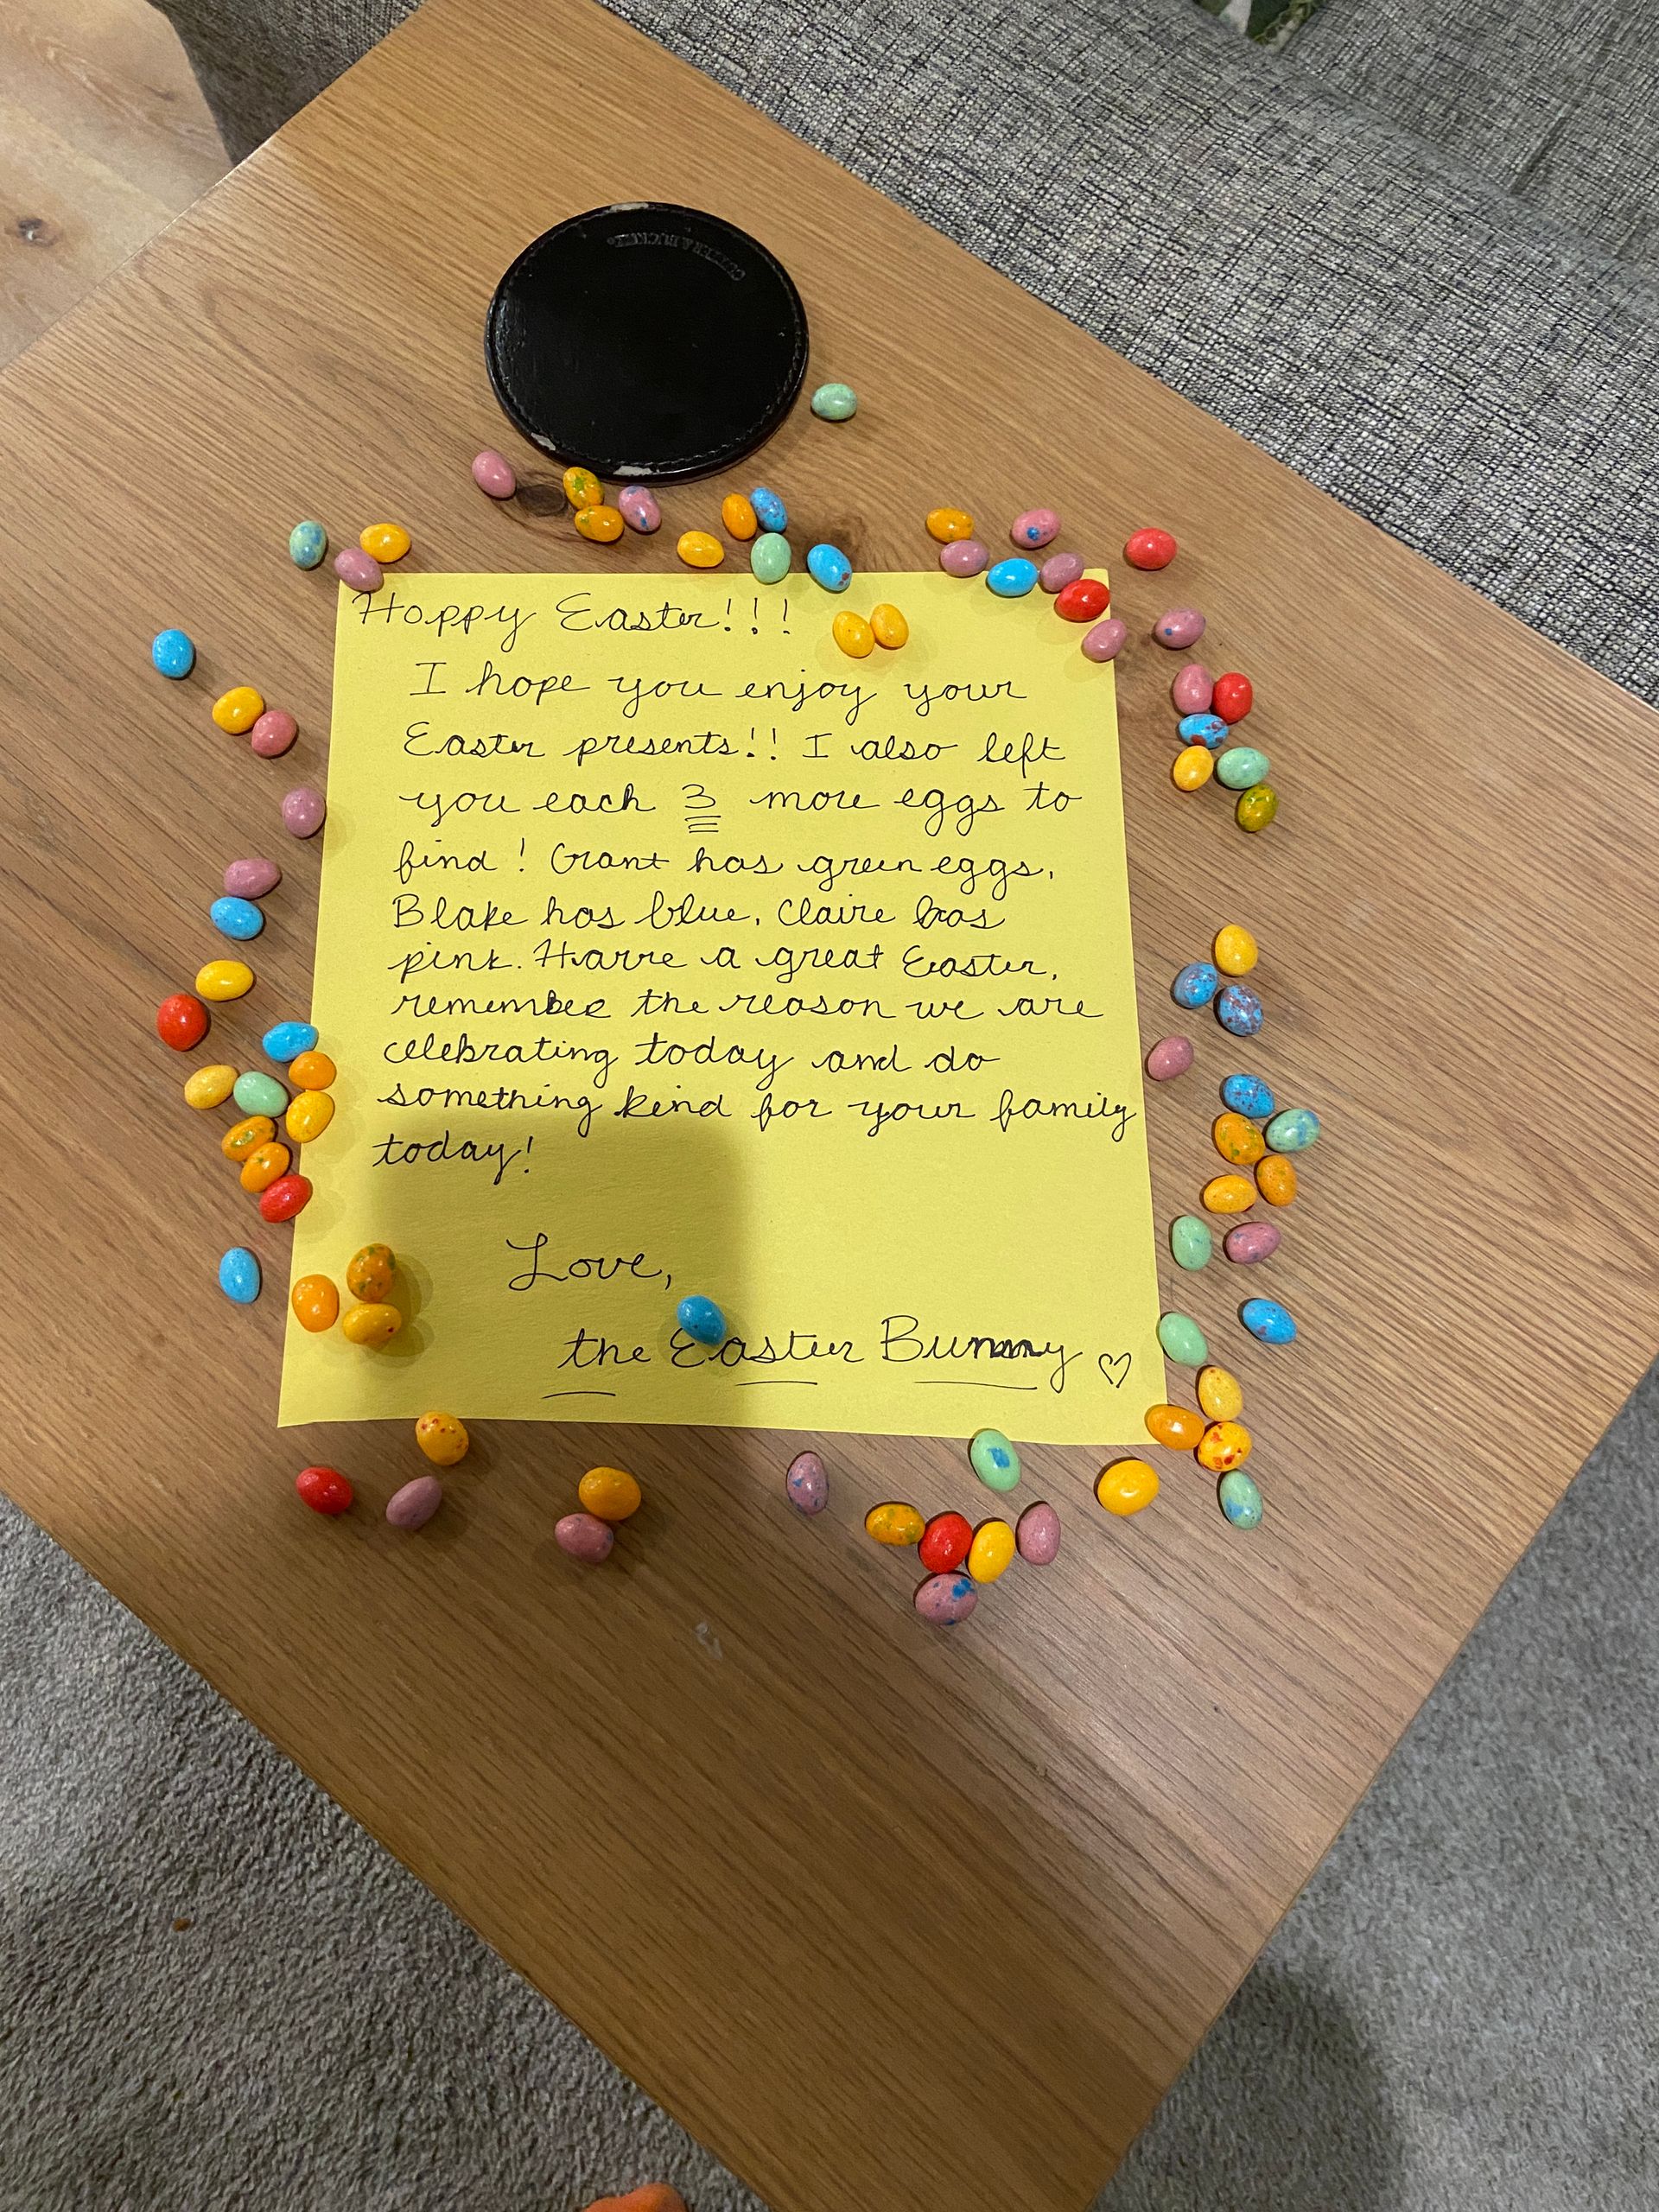 Hoppy Easter!!!
I hope you enjoy your
Easter presents!! I also left
you each 3 more eggs to
find! Grant has green eggs,
Blake has blue, Claire has
pink. Have a great Easter,
remember the reason we are
celebrating today and do
something kind for your family
today!
Love,
the Easter Bunny ♡